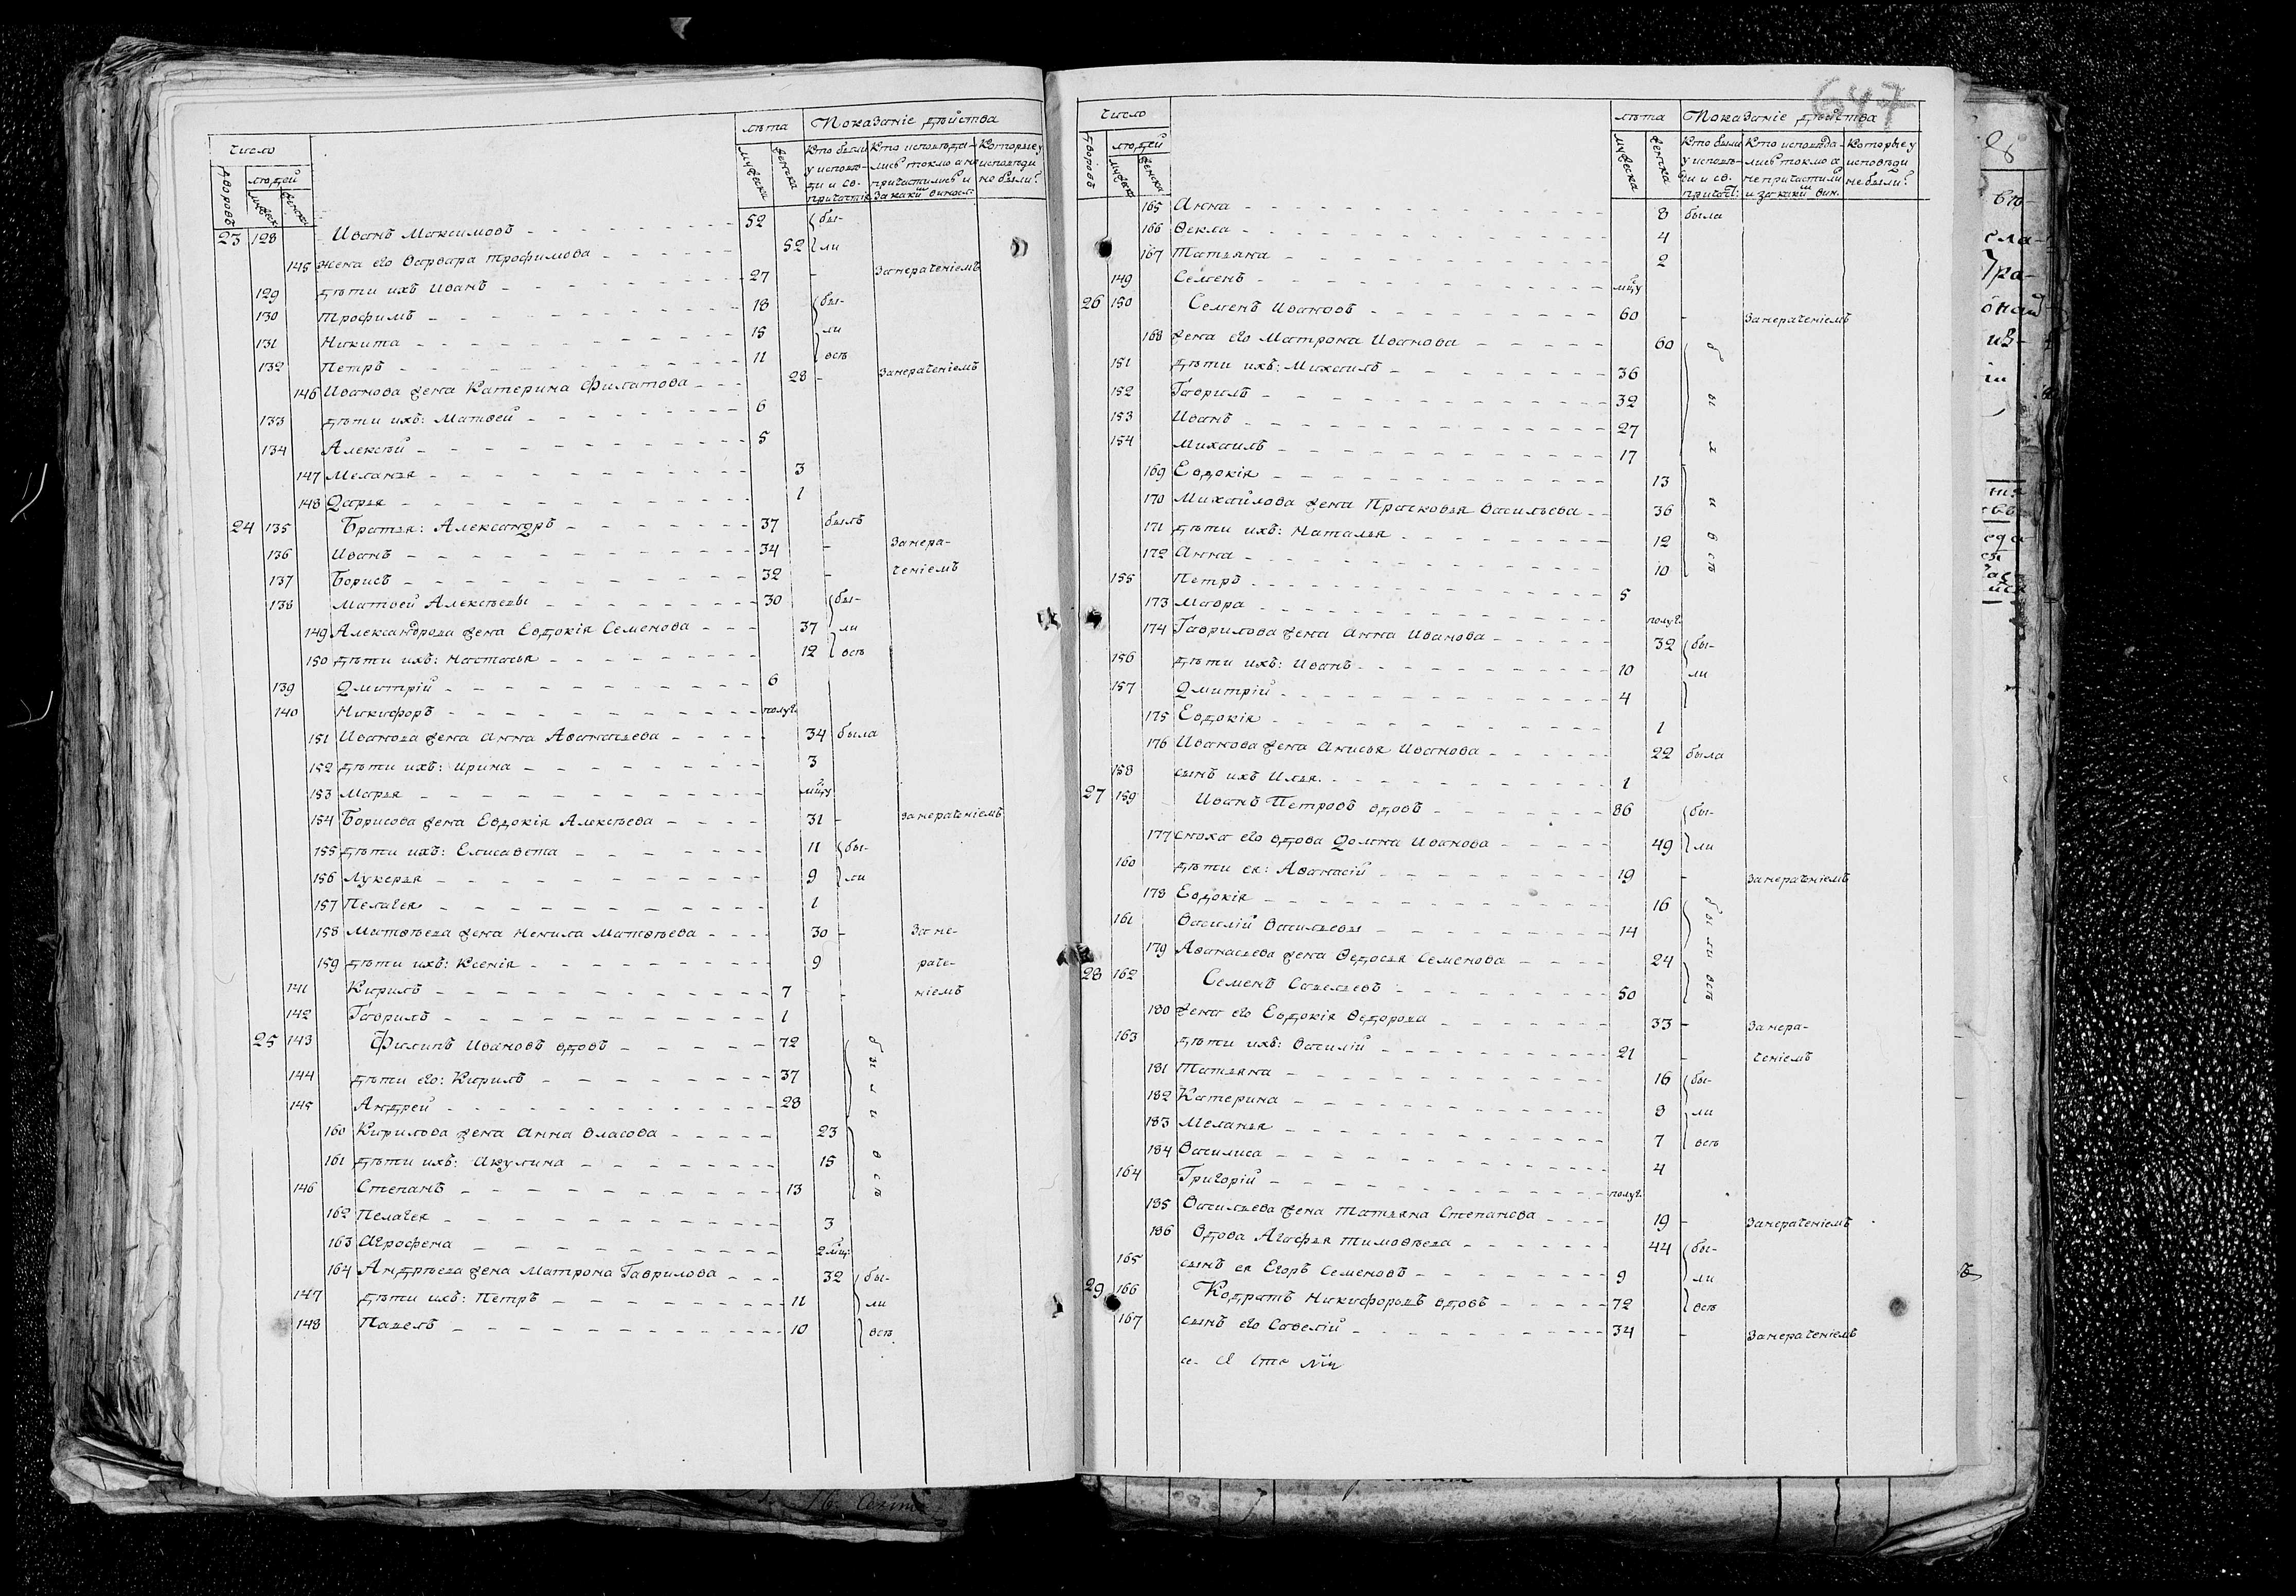 число
лѣта Показаніе дѣйства
дворовъ
людей
мужеска
женска
мужеска
женска
Кто были у исповѣди и св. причастія
Кто исповѣдались токмо а не причастились и за какимъ винословіемъ
Которые у исповѣди не были?
23 128 Иванъ Максимовъ 52 бы-
145 жена его Варвара Трофимова 52 ли
129 дѣти ихъ Иванъ 27 - За нераченіемъ
130 Трофимъ 18 бы-
131 Никита 15 ли
132 Петръ 11 всѣ
146 Иванова жена Катерина Филатова 28 - За нераченіемъ
133 дѣти ихъ: Матвей 6
134 Алексѣй 5
147 Меланья 3
148 Дарья 1
24 135 Братья: Александръ 37 былъ
136 Иванъ 34 - За нера-
137 Борисъ 32 - ченіемъ
138 Матвей Алексѣевы 30 бы-
149 Александрова жена Евдокія Семенова 37 ли
150 дѣти ихъ: Настасья 12 всѣ
139 Дмитрій 6
140 Никифоръ полуг.
151 Иванова жена Анна Аванасьева 34 была
152 дѣти ихъ: Ирина 3
153 Марья мѣц.
154 Борисова жена Евдокія Алексѣева 31 - За нераченіемъ
155 дѣти ихъ: Елисавета 11 бы-
156 Лукерья 9 ли
157 Пелагея 1
158 Матвѣева жена Ненила Матвѣева 30 - За не-
159 дѣти ихъ: Ксенія 9 раче-
141 Кирилъ 7 - ніемъ
142 Гаврилъ 1
25 143 Филипъ Ивановъ вдовъ 72 бы
144 дѣти его: Кирилъ 37 л
145 Андрей 28 и
160 Кирилова жена Анна Власова 23
161 дѣти ихъ: Акулина 15 в
146 Степанъ 13 сѣ
162 Пелагея 3
163 Агрофена 2 мѣц.
164 Андрѣева жена Матрона Гаврилова 32 бы-
147 дѣти ихъ: Петръ 11 ли
148 Павелъ 10 всѣ.
647
число
лѣта Показаніе дѣйства
дворовъ
людей
мужеска
женска
мужеска
женска
Кто были у исповѣди и св. причаст:
Кто исповѣдались токмо а не причастили и за какимъ вин.
Которые у исповѣди не были?
165 Анна 8 была
166 Ѳекла 4
167 Татьяна 2
149 Семенъ мѣц.
26 150 Семенъ Ивановъ 60 - За нераченіемъ
168 жена его Матрона Иванова 60 б
151 дѣти ихъ: Михаилъ 36
152 Гаврилъ 32 ы
153 Иванъ 27
154 Михаилъ 17 л
169 Евдокія 13
170 Михайлова жена Прасковья Васильева 36 и
171 дѣти ихъ: Наталья 12 в
172 Анна 10 сѣ
155 Петръ 5
173 Мавра полуг.
174 Гаврилова жена Анна Иванова 32 бы-
156 дѣти ихъ: Иванъ 10 ли
157 Дмитрій 4
175 Евдокія 1
176 Иванова жена Анисья Иванова 22 была
158 сынъ ихъ Илья 1
27 159 Иванъ Петровъ вдовъ 86 бы-
177 сноха его вдова Домна Иванова 49 ли
160 дѣти ея: Аванасій 19 - За нераченіемъ
178 Евдокія 16 б
161 Василій Васильевы 14 ы ли
179 Аванасьева жена Ѳедосья Семенова 24
28 162 Семенъ Савельевъ 50 всѣ
180 жена его Евдокія Ѳедорова 33 - За нера-
163 дѣти ихъ: Василій 21 - ченіемъ
181 Татьяна 16 бы-
182 Катерина 9 ли
183 Меланья 7 всѣ
184 Василиса 4
164 Григорій полуг.
185 Васильева жена Татьяна Степанова 19 - За нераченіемъ
186 Вдова Агафья Тимовѣева 44 бы-
165 сынъ ея Егоръ Семеновъ 9 ли
29 166 Кодратъ Никифоровъ вдовъ 72 всѣ
167 сынъ его Савелій 34 - За нераченіемъ